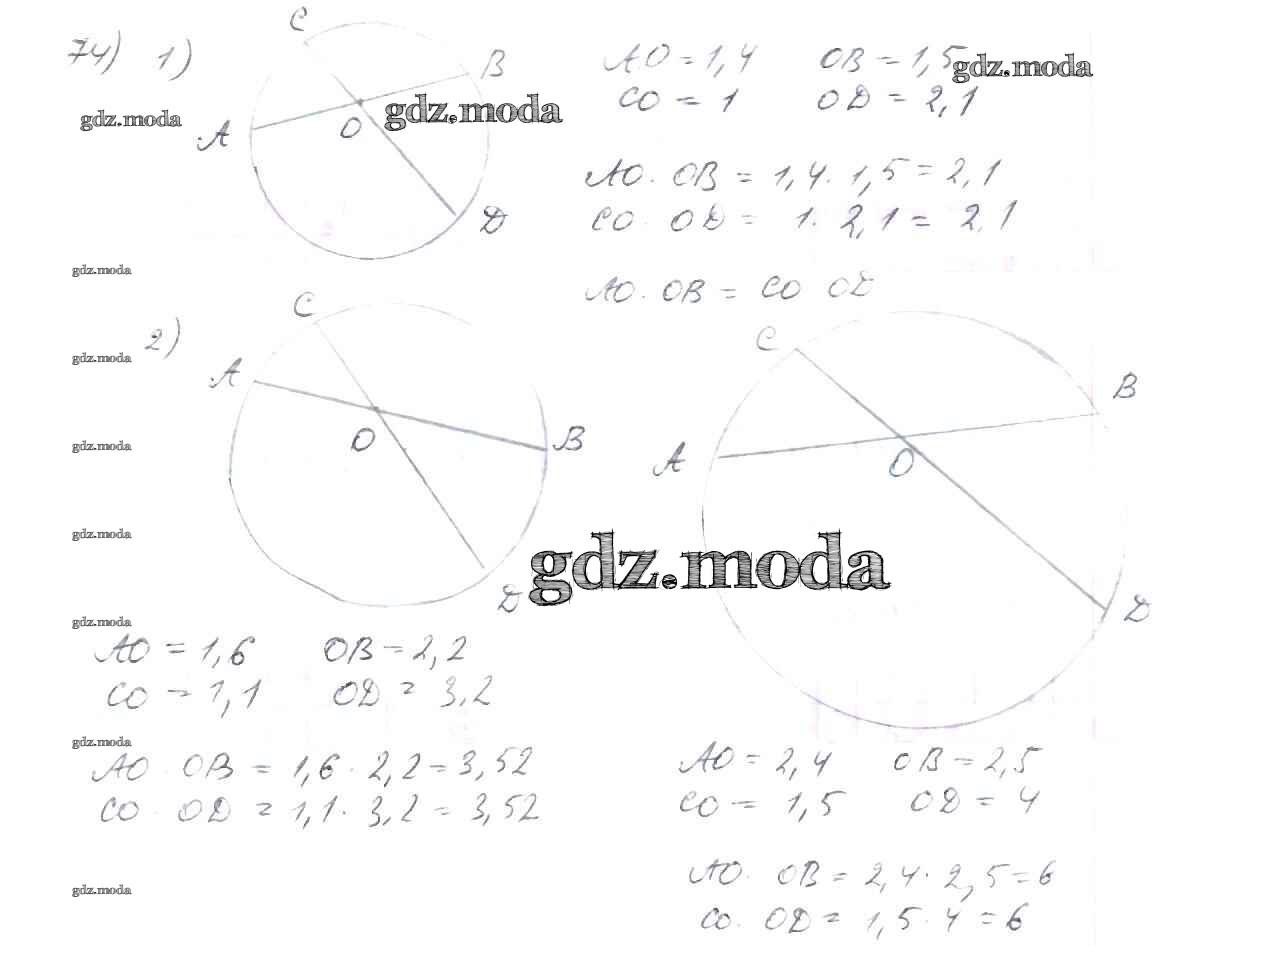 74) 1)
C
B
A
O
D
AO = 1,4 OB = 1,5
CO = 1 OD = 2,1
AO · OB = 1,4 · 1,5 = 2,1
CO · OD = 1 · 2,1 = 2,1
AO · OB = CO OD
gdz.moda
gdz.moda
gdz.moda
gdz.moda
2)
C
A
O
B
D
C
B
A
O
D
gdz.moda
gdz.moda
gdz.moda
gdz.moda
gdz.moda
AO = 1,6 OB = 2,2
CO = 1,1 OD = 3,2
AO · OB = 1,6 · 2,2 = 3,52
CO · OD = 1,1 · 3,2 = 3,52
gdz.moda
gdz.moda
AO = 2,4 OB = 2,5
CO = 1,5 OD = 4
AO · OB = 2,4 · 2,5 = 6
CO · OD = 1,5 · 4 = 6